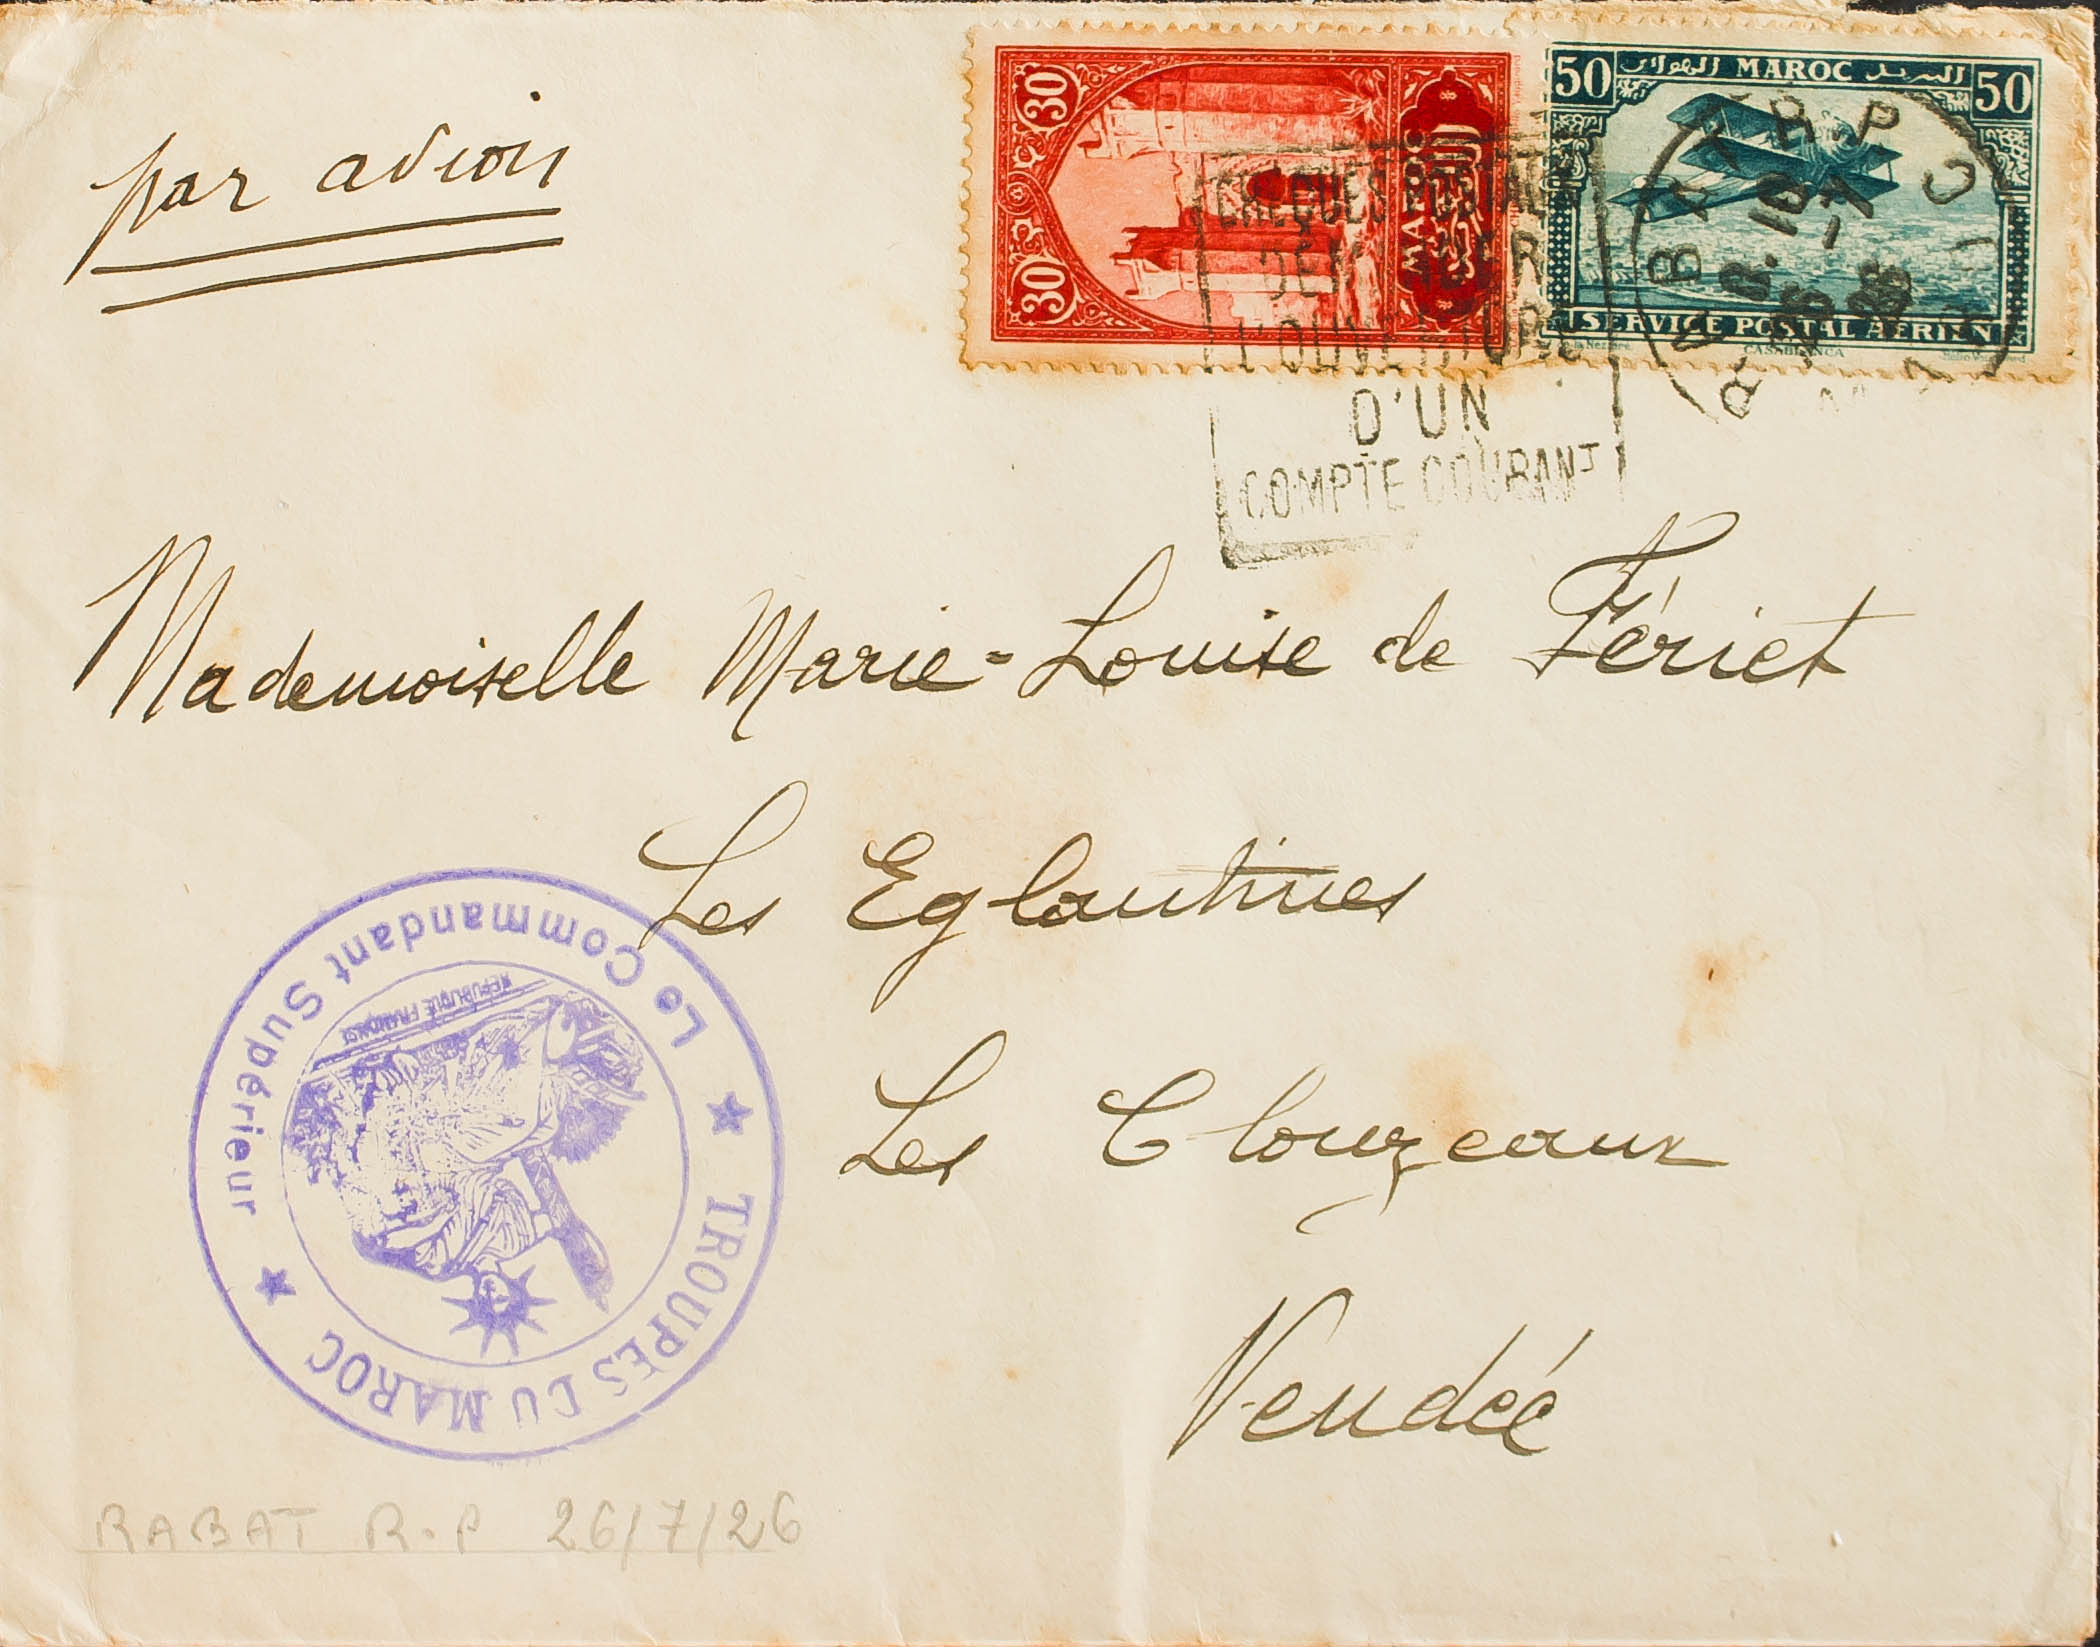 par avion
30
30
MAROC
50 MAROC البريد الهوائي 50
SERVICE POSTAL AÉRIEN
CASABLANCA
CHEQUES POSTAUX
L'OUVERTURE
D'UN
COMPTE COURANT
RABAT R.P
26 - 7
26
MAROC
Mademoiselle Marie-Louise de Fériet
Les Eglantines
Les Clouzeaux
Vendée
Le Commandant Supérieur
TROUPES DU MAROC
REPUBLIQUE FRANÇAISE
RABAT R.P 26/7/26